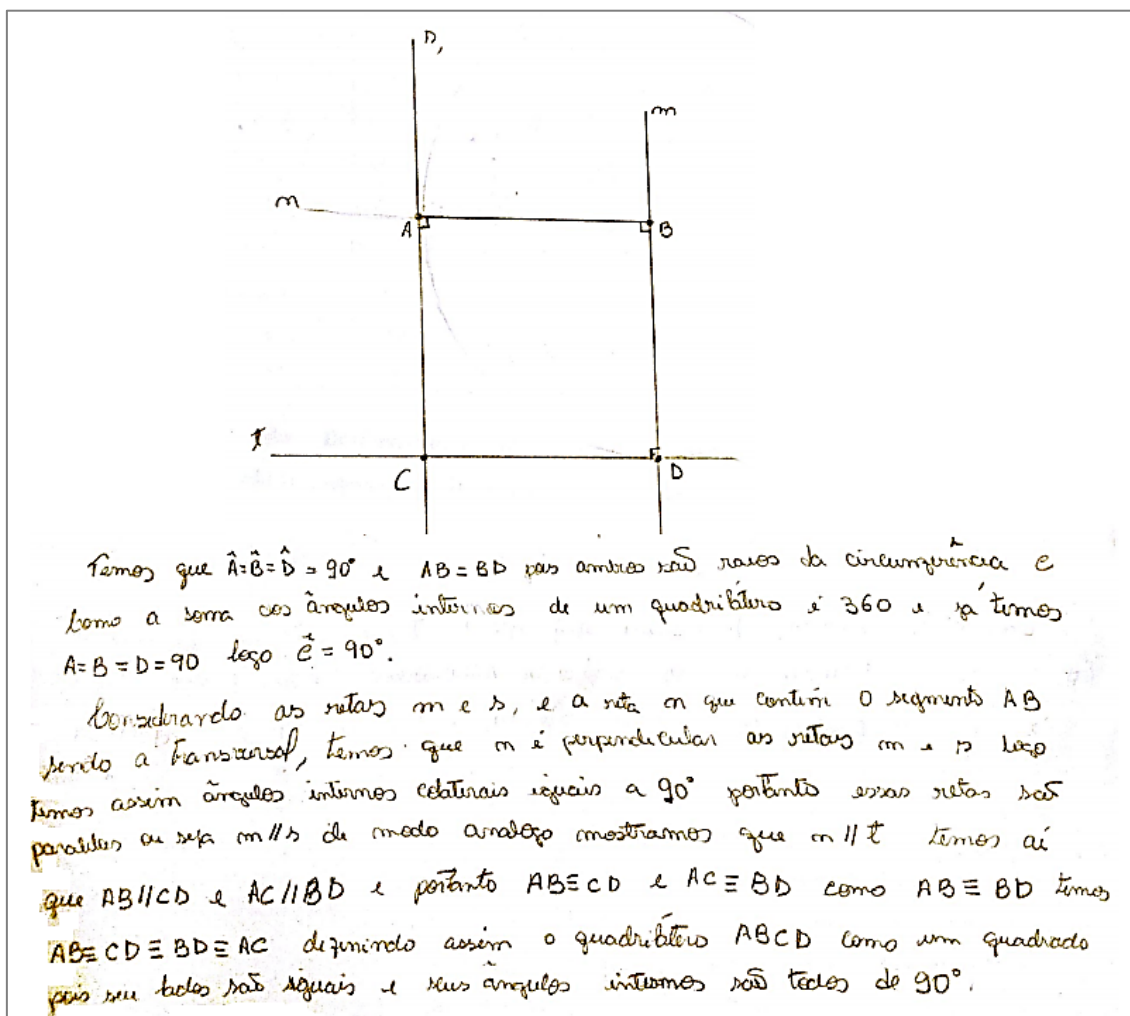 s,
m
n
A
B
t
C
D
Temos que Â=B̂=D̂ = 90° e AB = BD pois ambos são raios da circunferência e
como a soma dos ângulos internos de um quadrilátero é 360 e já temos
A=B=D=90 logo ĉ = 90°.
Considerando as retas m e s, e a reta n que contém o segmento AB
sendo a transversal, temos que n é perpendicular as retas m e s logo
temos assim ângulos internos colaterais iguais a 90° portanto essas retas são
paralelas ou seja m//s de modo analogo mostramos que n//t temos aí
que AB//CD e AC//BD e portanto AB≡CD e AC≡BD como AB≡BD temos
AB≡CD≡BD≡AC definindo assim o quadrilátero ABCD como um quadrado
pois seu lados são iguais e seus ângulos internos são todos de 90°.